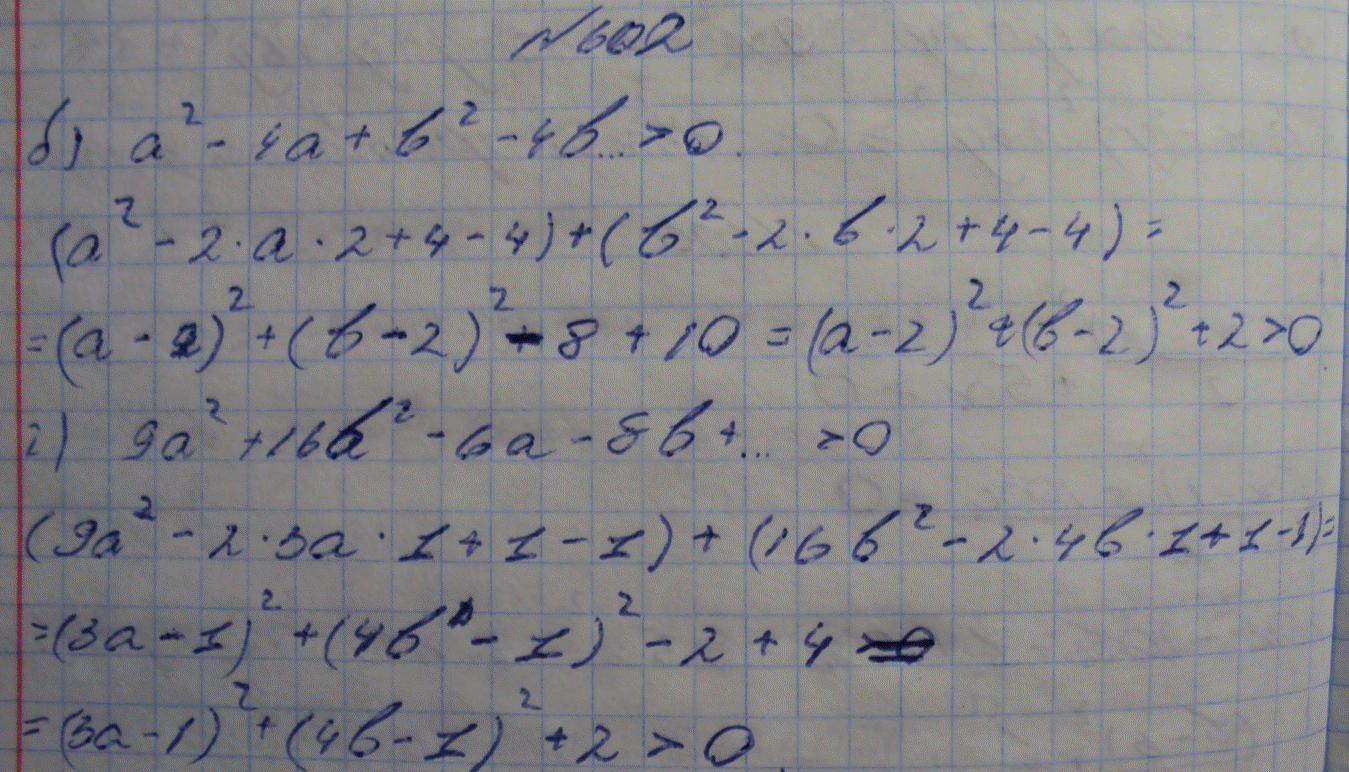 №602
б) a² - 4a + b² - 4b... > 0.
(a² - 2·a·2 + 4 - 4) + (b² - 2·b·2 + 4 - 4) =
= (a - 2)² + (b - 2)² - 8 + 10 = (a - 2)² + (b - 2)² + 2 > 0
г) 9a² + 16b² - 6a - 8b + ... > 0
(9a² - 2·3a·1 + 1 - 1) + (16b² - 2·4b·1 + 1 - 1) =
= (3a - 1)² + (4b - 1)² - 2 + 4
= (3a - 1)² + (4b - 1)² + 2 > 0.